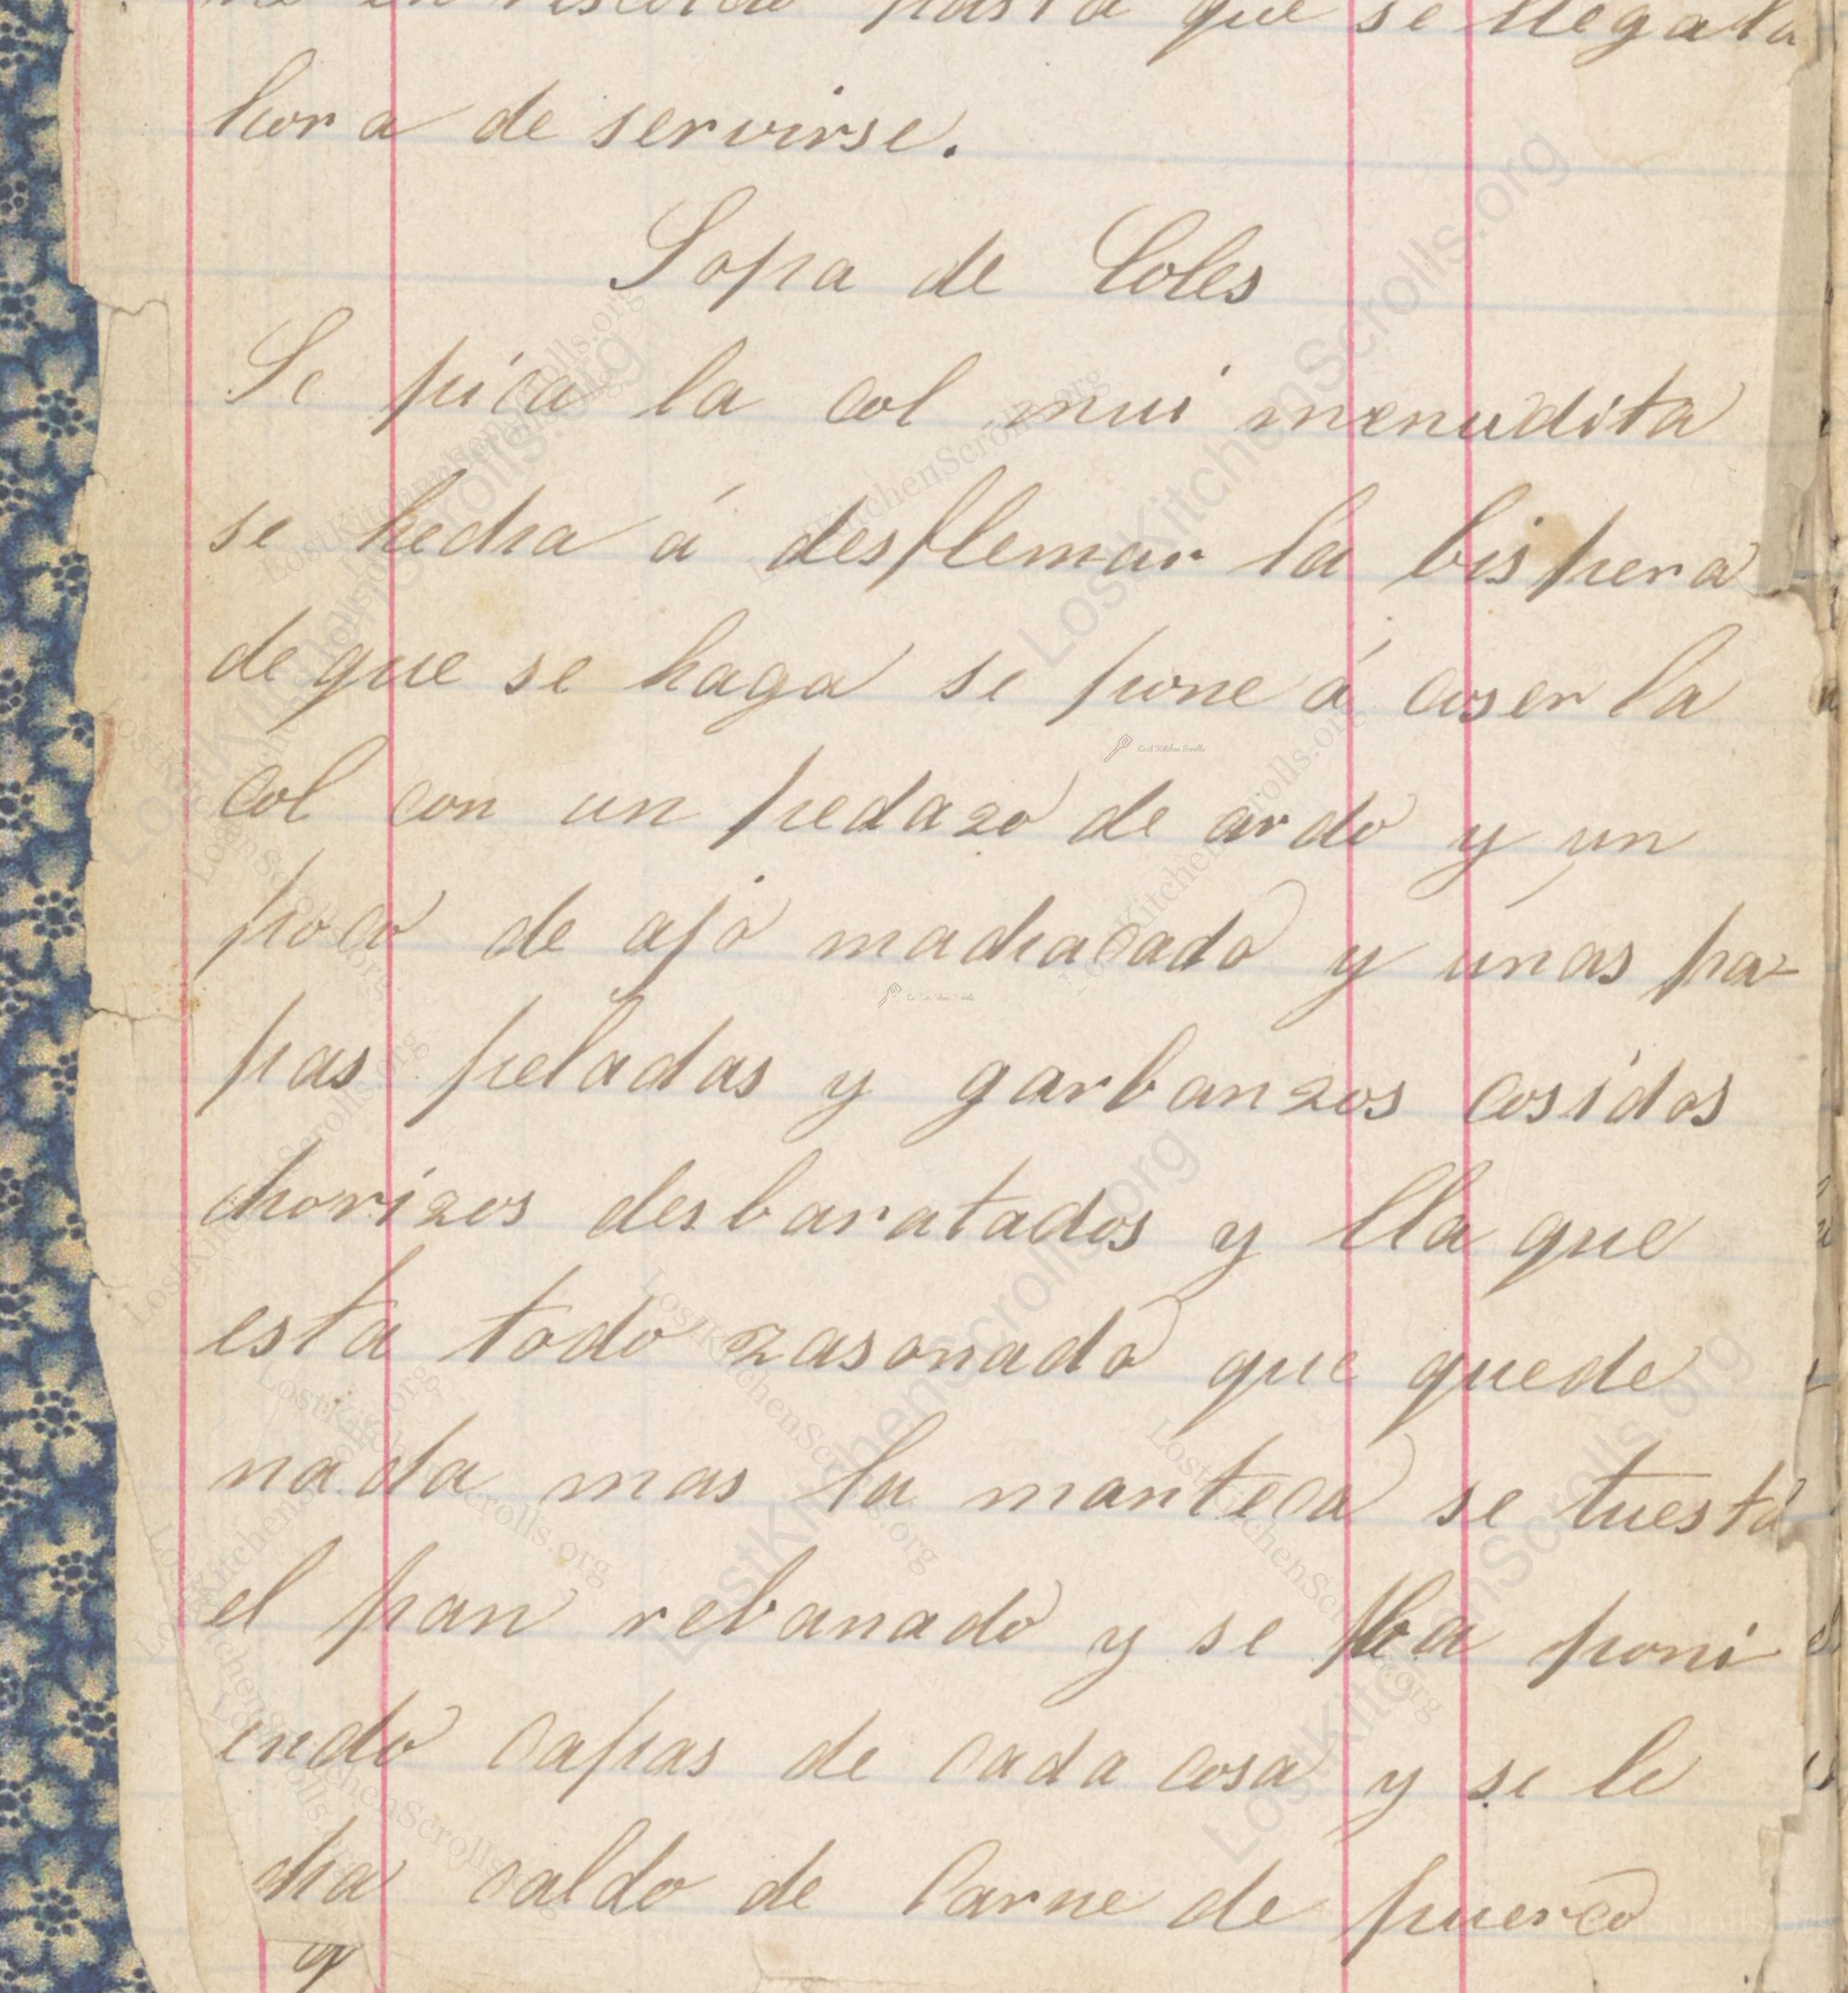 en rescoldo hasta que se llega la
hora de servirse.
Sopa de Coles
Se pica la col mui menudita
se hecha á desflemar la bispera
de que se haga se pone á coser la
col con un pedazo de ardo y un
poco de ajo machacado y unas pa-
pas peladas y garbanzos cosidos
chorizos desbaratados y lla que
esta todo zasonado que quede
nada mas la manteca se tuesta
el pan rebanado y se ba poni
endo capas de cada cosa y se le
cha caldo de Carne de puerco
y